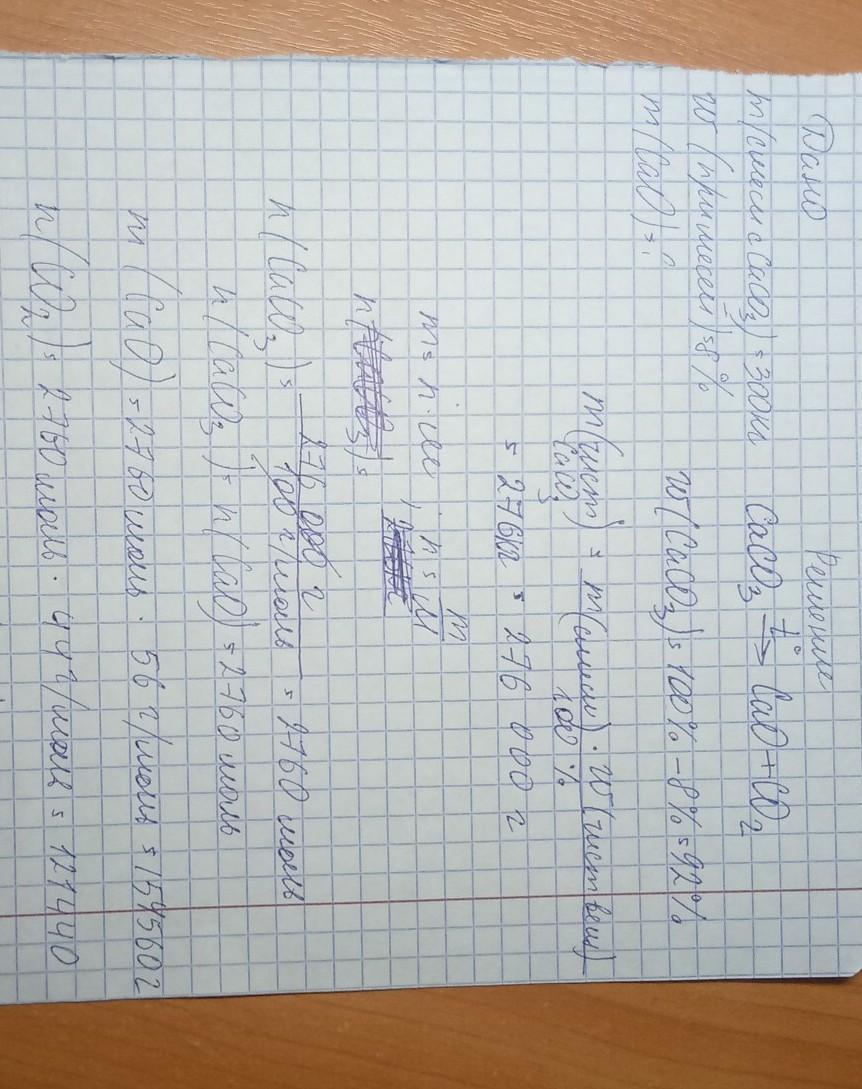 Дано
Решение
m(смеси с CaCO3) = 300кг
CaCO3 t°→ CaO + CO2
w(примесей) = 8%
w(CaCO3) = 100% - 8% = 92%
m(CaO) = ?
m(чист CaCO3) = m(смеси) · w(чист вещ) / 100%
= 276кг = 276 000 г
m = n · M ; n = m / M
n(CaCO3) = 276 000 г / 100 г/моль = 2760 моль
n(CaCO3) = n(CaO) = 2760 моль
m(CaO) = 2760 моль · 56 г/моль = 154560 г
n(CO2) = 2760 моль · 44 г/моль = 121440